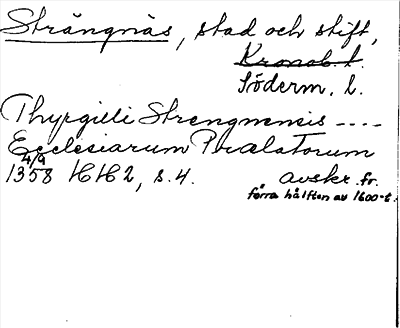 Strängnäs, stad och stift,
Kronob. l.
Söderm. l.
Thyrgilli Strengnensis ----
Ecclesiarum Prælatorum
4/9
1358 HH 2, s. 4. avskr. fr.
förra hälften av 1600-t.